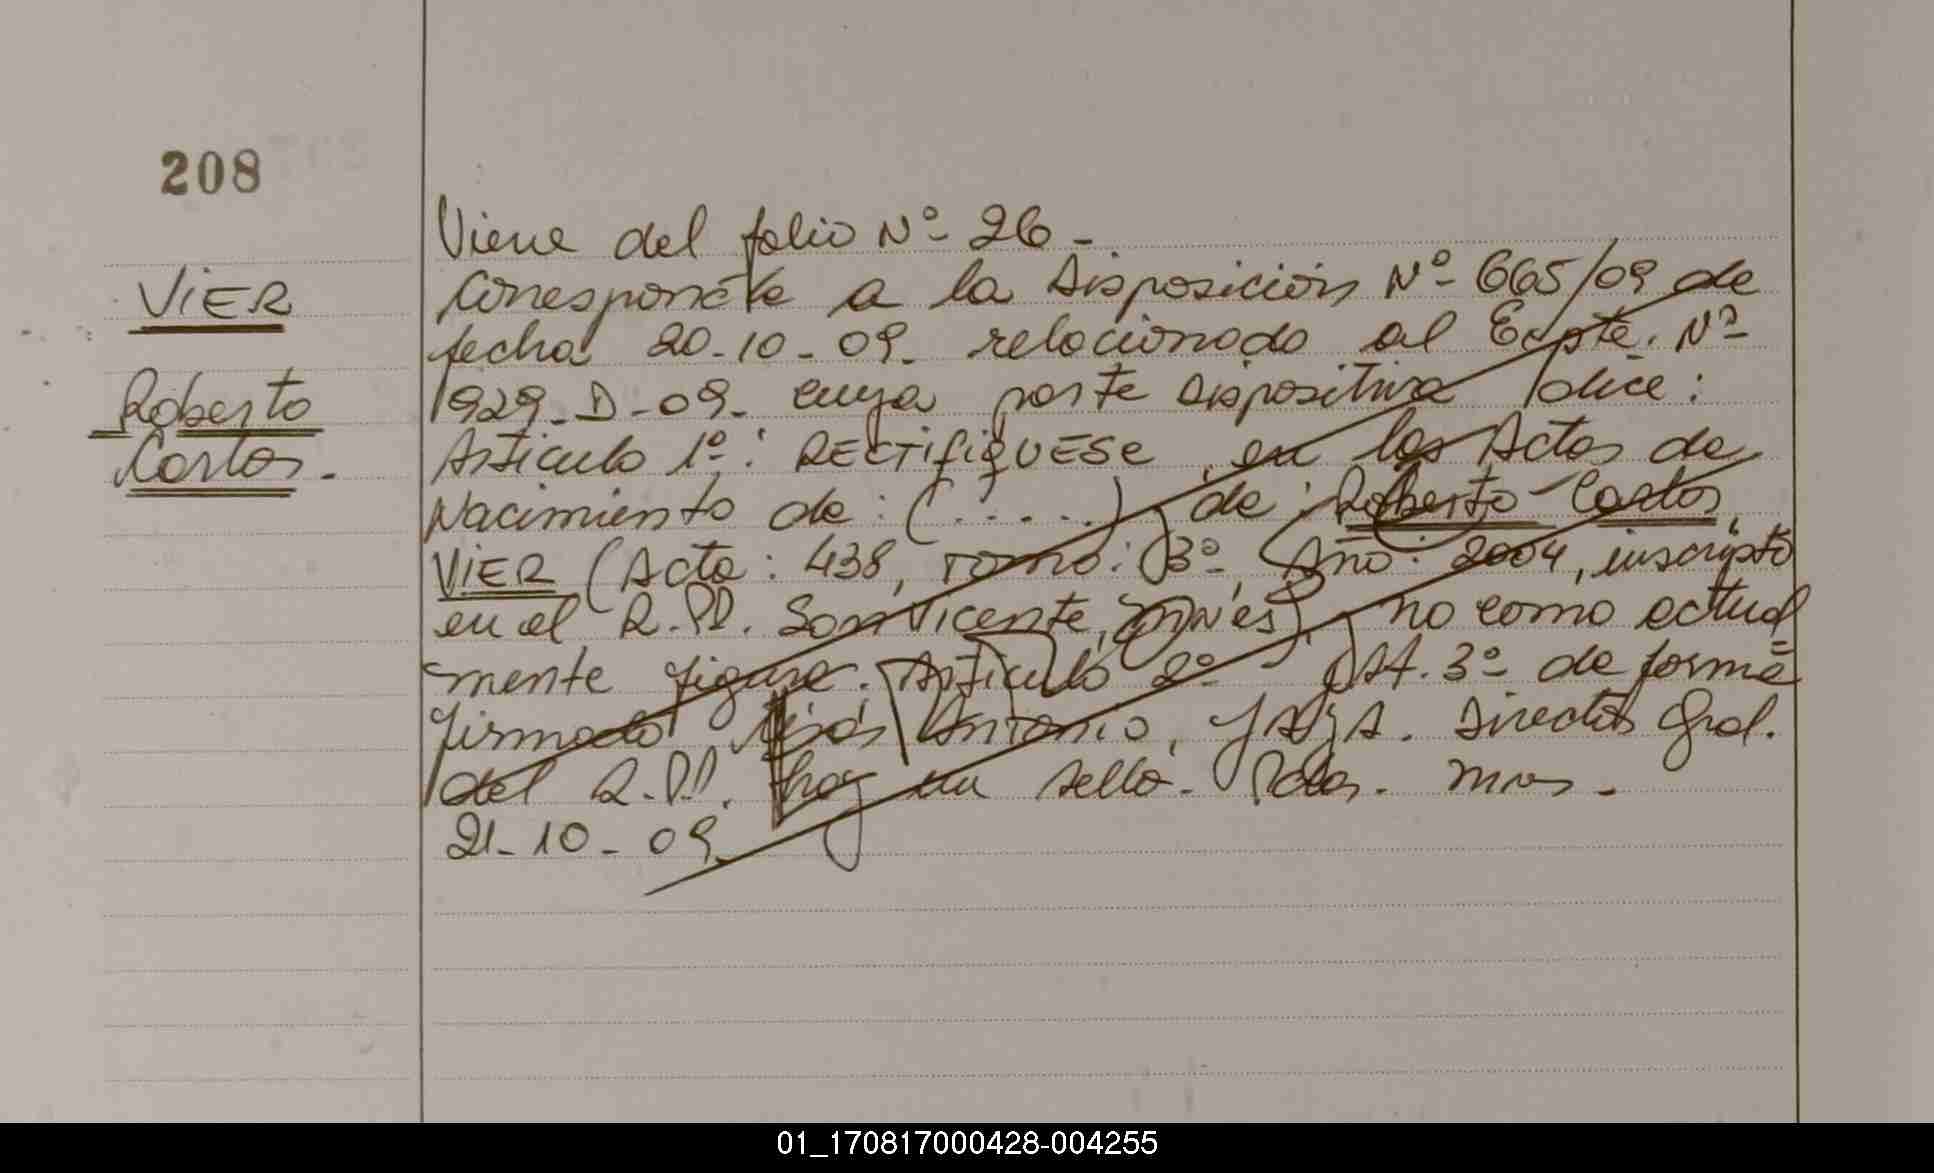 208
Viene del folio Nº 26 -
VIER
Corresponde a la Disposición Nº 665/09 de
fecha 20-10-09- relacionado al Expte. Nº
Roberto
Carlos.-
929-D-09- cuya parte dispositiva dice:
Artículo 1º: RECTIFIQUESE, en las Actas de
Nacimiento de: (.....) de: Roberto Carlos,
VIER (Acta: 438, Tomo: 3º, Año: 2004, inscripto
en el R.PP. San Vicente, Mnes), no como actual
mente figura. Artículo 2º Art. 3º de forma
firmado Antonio, Director Gral.
del R.PP. hay un sello. Pdas. Mnes -
21-10-09
01_170817000428-004255